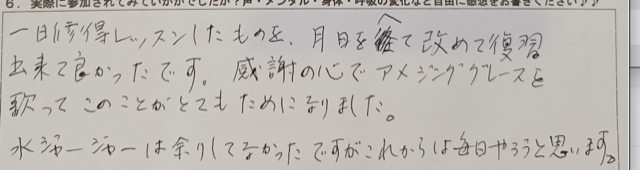 6. 実際に参加されてみていかがでしたか？声・メンタル・身体・呼吸の変化など自由に感想をお書きください♪♪
一日修得レッスンしたものを、月日を経て改めて復習
出来て良かったです。感謝の心でアメジンググレースを
歌ってこのことがとてもためになりました。
水ジャージャーは余りしてなかったですがこれからは毎日やろうと思います。